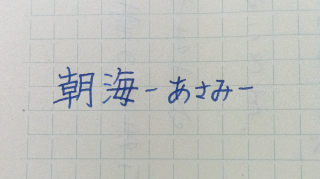 朝海-あさみ-